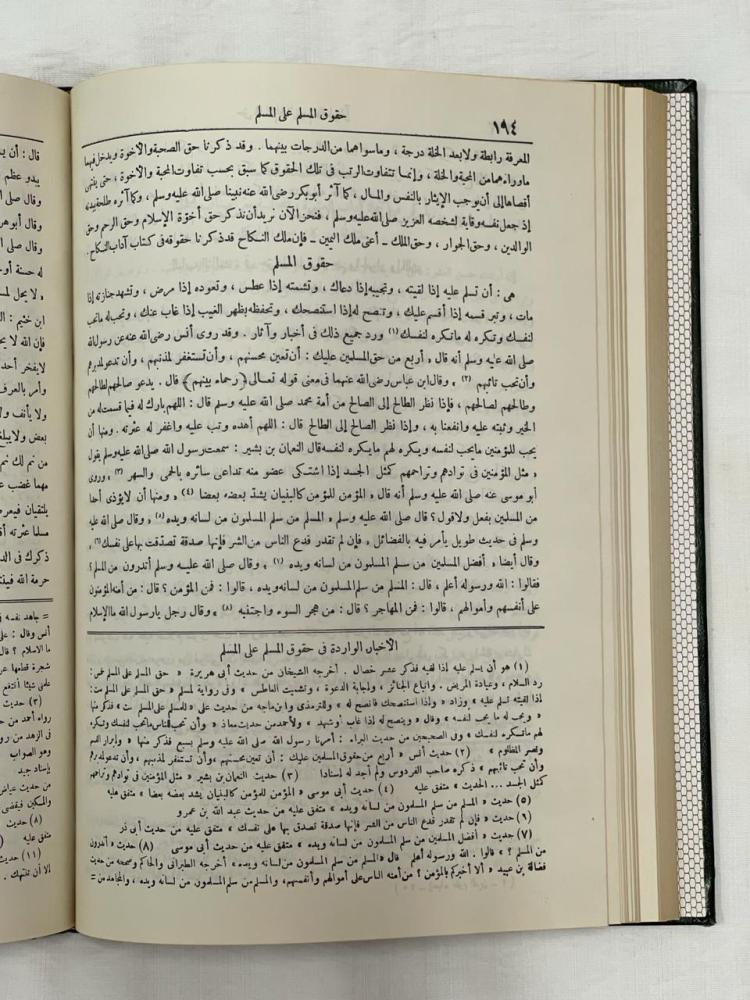 حقوق المسلم على المسلم
١٩٤
المعرفة رابطة ولابعد الخلة درجة ، وماسواهما من الدرجات بينهما . وقد ذكرنا حق الصحبة والأخوة ويدخل فيهما
ماوراءهما من المحبة والخلة ، وإنما تتفاوت الرتب فى تلك الحقوق كما سبق بحسب تفاوت المحبة والأخوة ، حتى ينتهى
أقصاها إلى أن يوجب الإيثار بالنفس والمال ، كما آثر أبو بكر رضى الله عنه نبينا صلى الله عليه وسلم ، وكما آثره طلحة ببدنه
إذ جعل نفسه وقاية لشخصه العزيز صلى الله عليه وسلم ، فنحن الآن نريد أن نذكر حق أخوة الإسلام وحق الرحم وحق
الوالدين ، وحق الجوار ، وحق الملك ـ أعنى ملك اليمين ـ فإن ملك النكاح قد ذكرنا حقوقه فى كتاب آداب النكاح.
حقوق المسلم
هى : أن تسلم عليه إذا لقيته ، وتجيبه إذا دعاك ، وتشمته إذا عطس ، وتعوده إذا مرض ، وتشهد جنازته إذا
مات ، وتبر قسمه إذا أقسم عليك ، وتنصح له إذا استنصحك ، وتحفظه بظهر الغيب إذا غاب عنك ، وتحب له ماتحب
لنفسك وتكره له ماتكره لنفسك (١) ورد جميع ذلك فى أخبار وآثار . وقد روى أنس رضى الله عنه عن رسول الله
صلى الله عليه وسلم أنه قال « أربع من حق المسلمين عليك : أن تعين محسنهم ، وأن تستغفر لمذنبهم ، وأن تدعو لمدبرهم
وأن تحب تائبهم (٢) » وقال ابن عباس رضى الله عنهما فى معنى قوله تعالى ﴿ رحماء بينهم ﴾ قال . يدعو صالحهم لطالحهم
وطالحهم لصالحهم ، فإذا نظر الطالح إلى الصالح من أمة محمد صلى الله عليه وسلم قال : اللهم بارك له فيما قسمت له من
الخير وثبته عليه وانفعنا به ، وإذا نظر الصالح إلى الطالح قال : اللهم اهده وتب عليه واغفر له عثرته . ومنها أن
يحب للمؤمنين مايحب لنفسه ويكره لهم مايكره لنفسه قال النعمان بن بشير : سمعت رسول الله صلى الله عليه وسلم يقول
« مثل المؤمنين فى توادهم وتراحمهم كمثل الجسد إذا اشتكى عضو منه تداعى سائره بالحمى والسهر (٣) » وروى
أبو موسى عنه صلى الله عليه وسلم أنه قال « المؤمن للمؤمن كالبنيان يشد بعضه بعضا (٤) » ومنها أن لايؤذى أحدا
من المسلمين بفعل ولاقول ؟ قال صلى الله عليه وسلم « المسلم من سلم المسلمون من لسانه ويده (٥) » وقال صلى الله عليه
وسلم فى حديث طويل يأمر فيه بالفضائل « فإن لم تقدر فدع الناس من الشر فإنها صدقة تصدقت بها على نفسك (٦) »
وقال أيضا « أفضل المسلمين من سلم المسلمون من لسانه ويده (٧) » وقال صلى الله عليه وسلم أتدرون من المسلم ؟
فقالوا : الله ورسوله أعلم ، قال : المسلم من سلم المسلمون من لسانه ويده ، قالوا : فمن المؤمن ؟ قال : من أمنه المؤمنون
على أنفسهم وأموالهم ، قالوا : فمن المهاجر ؟ قال : من هجر السوء واجتنبه (٨) » وقال رجل يارسول الله ما الإسلام
الأخبار الواردة فى حقوق المسلم على المسلم
(١) هو أن يسلم عليه إذا لقيه فذكر عشر خصال . أخرجه الشيخان من حديث أبى هريرة « حق المسلم على المسلم خمس :
رد السلام ، وعيادة المريض . واتباع الجنائز ، وإجابة الدعوة ، وتشميت العاطس » وفى رواية لمسلم « حق المسلم على المسلم ست :
إذا لقيته تسلم عليه » وزاد « وإذا استنصحك فانصح له » والترمذى وابن ماجه من حديث على « للمسلم على المسلم ست » فذكر منها
« ويحب له ما يحب لنفسه » وقال « وينصح له إذا غاب أو شهد » ولأحمد من حديث معاذ « وأن تحب للناس ماتحب لنفسك وتكره
لهم ماتكره لنفسك » وفى الصحيحين من حديث البراء : أمرنا رسول الله صلى الله عليه وسلم بسبع فذكر منها « وإبرار القسم
ونصر المظلوم » (٢) حديث أنس « أربع من حقوق المسلمين عليك : أن تعين محسنهم ، وأن تستغفر لمذنبهم ، وأن تدعو لمدبرهم
وأن تحب تائبهم » ذكره صاحب الفردوس ولم أجد له إسنادا (٣) حديث النعمان بن بشير « مثل المؤمنين فى توادهم وتراحمهم
كمثل الجسد ... الحديث » متفق عليه (٤) حديث أبى موسى « المؤمن للمؤمن كالبنيان يشد بعضه بعضا » متفق عليه
(٥) حديث « المسلم من سلم المسلمون من لسانه ويده » متفق عليه من حديث عبد الله بن عمرو
(٦) حديث « فإن لم تقدر فدع الناس من الشر فإنها صدقة تصدق بها على نفسك » متفق عليه من حديث أبى ذر
(٧) حديث « أفضل المسلمين من سلم المسلمون من لسانه ويده » متفق عليه من حديث أبى موسى (٨) حديث « أتدرون
من المسلم ؟ » قالوا . الله ورسوله أعلم قال « المسلم من سلم المسلمون من لسانه ويده » أخرجه الطبرانى والحاكم وصححه من حديث
فضالة بن عبيد « ألا أخبركم بالمؤمن ؟ من أمنه الناس على أموالهم وأنفسهم، والمسلم من سلم المسلمون من لسانه ويده ، والمجاهد من =